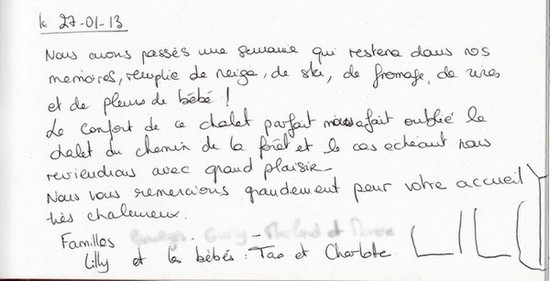 le 27-01-13
Nous avons passés une semaine qui restera dans nos
memoires, remplie de neige, de ski, de fromage, de rires
et de pleurs de bébé !
Le confort de ce chalet parfait nous a fait oublié le
chalet du chemin de la forêt et le cas echéant nous
reviendrons avec grand plaisir_
Nous vous remercions grandement pour votre accueil
très chaleureux.
Familles
Lilly et les bébés : Tao et Charlote
LILL